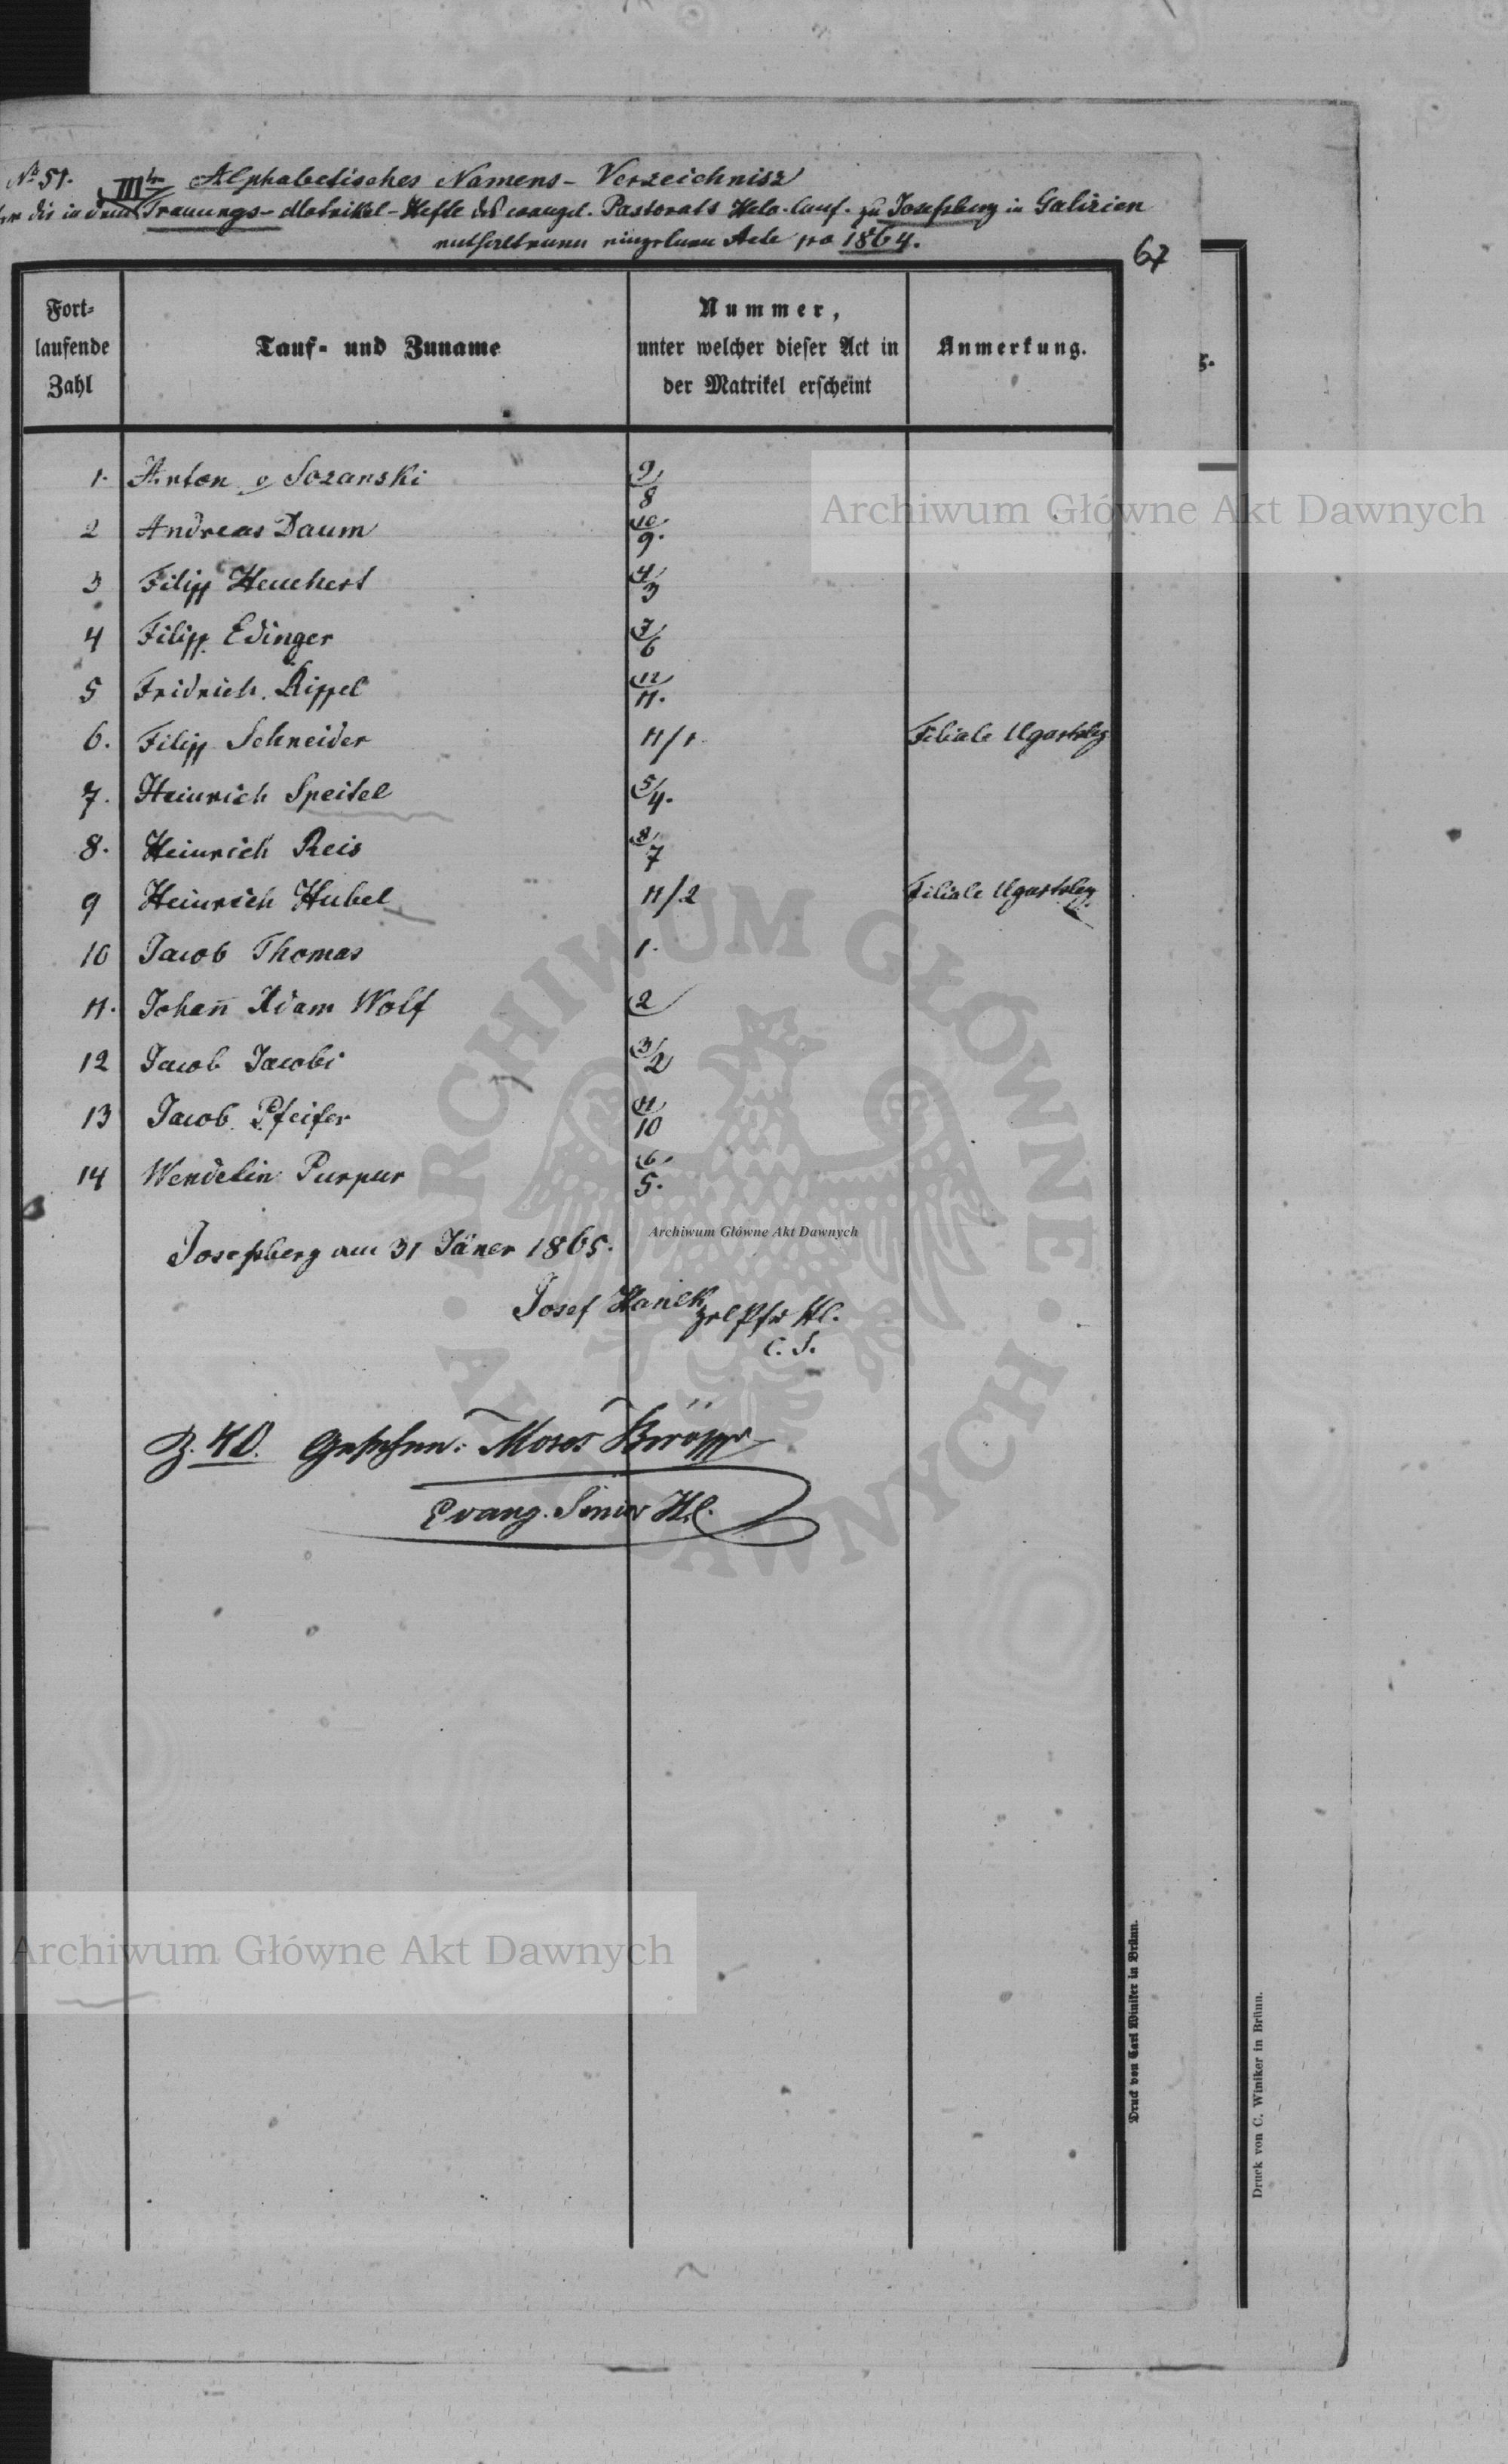 No 51. III Alphabetisches Namens-Verzeichnisz
der die in dem Trauungs-Matrikel-Hefte des evangel. Pastorats Helv. Conf. zu Josefsberg in Galizien
enthaltenen eingelnen Acte pro 1864.
67
Fort-
laufende
Zahl
Tauf- und Zuname
Nummer,
unter welcher dieser Act in
der Matrikel erscheint
Anmerkung.
1. Anton v Sozanski 9/8
2 Andreas Daum 10/9.
3 Filipp Heuchert 4/3
4 Filipp Edinger 7/6
5 Fridrich Rippel 12/11.
6. Filipp Schneider 11/1 Filiale Ugartsbg
7. Heinrich Speitel 5/4.
8. Heinrich Reis 8/7
9 Heinrich Hubel 11/2 Filiale Ugartsbg
10 Jacob Thomas 1.
11. Johann Adam Wolf 2
12 Jacob Jacobi 3/2
13 Jacob Pfeifer 11/10
14 Wendelin Purpur 6/5.
Josefsberg am 31 Jäner 1865.
Josef Hanek
Pfr H.
C. S.
Z. 40. Gesehen: Moses
Evang. Senior H.C.
Druck von Carl Winiker in Brünn.
Druck von C. Winiker in Brünn.
Archiwum Główne Akt Dawnych
Archiwum Główne Akt Dawnych
Archiwum Główne Akt Dawnych
ARCHIWUM GŁÓWNE AKT DAWNYCH